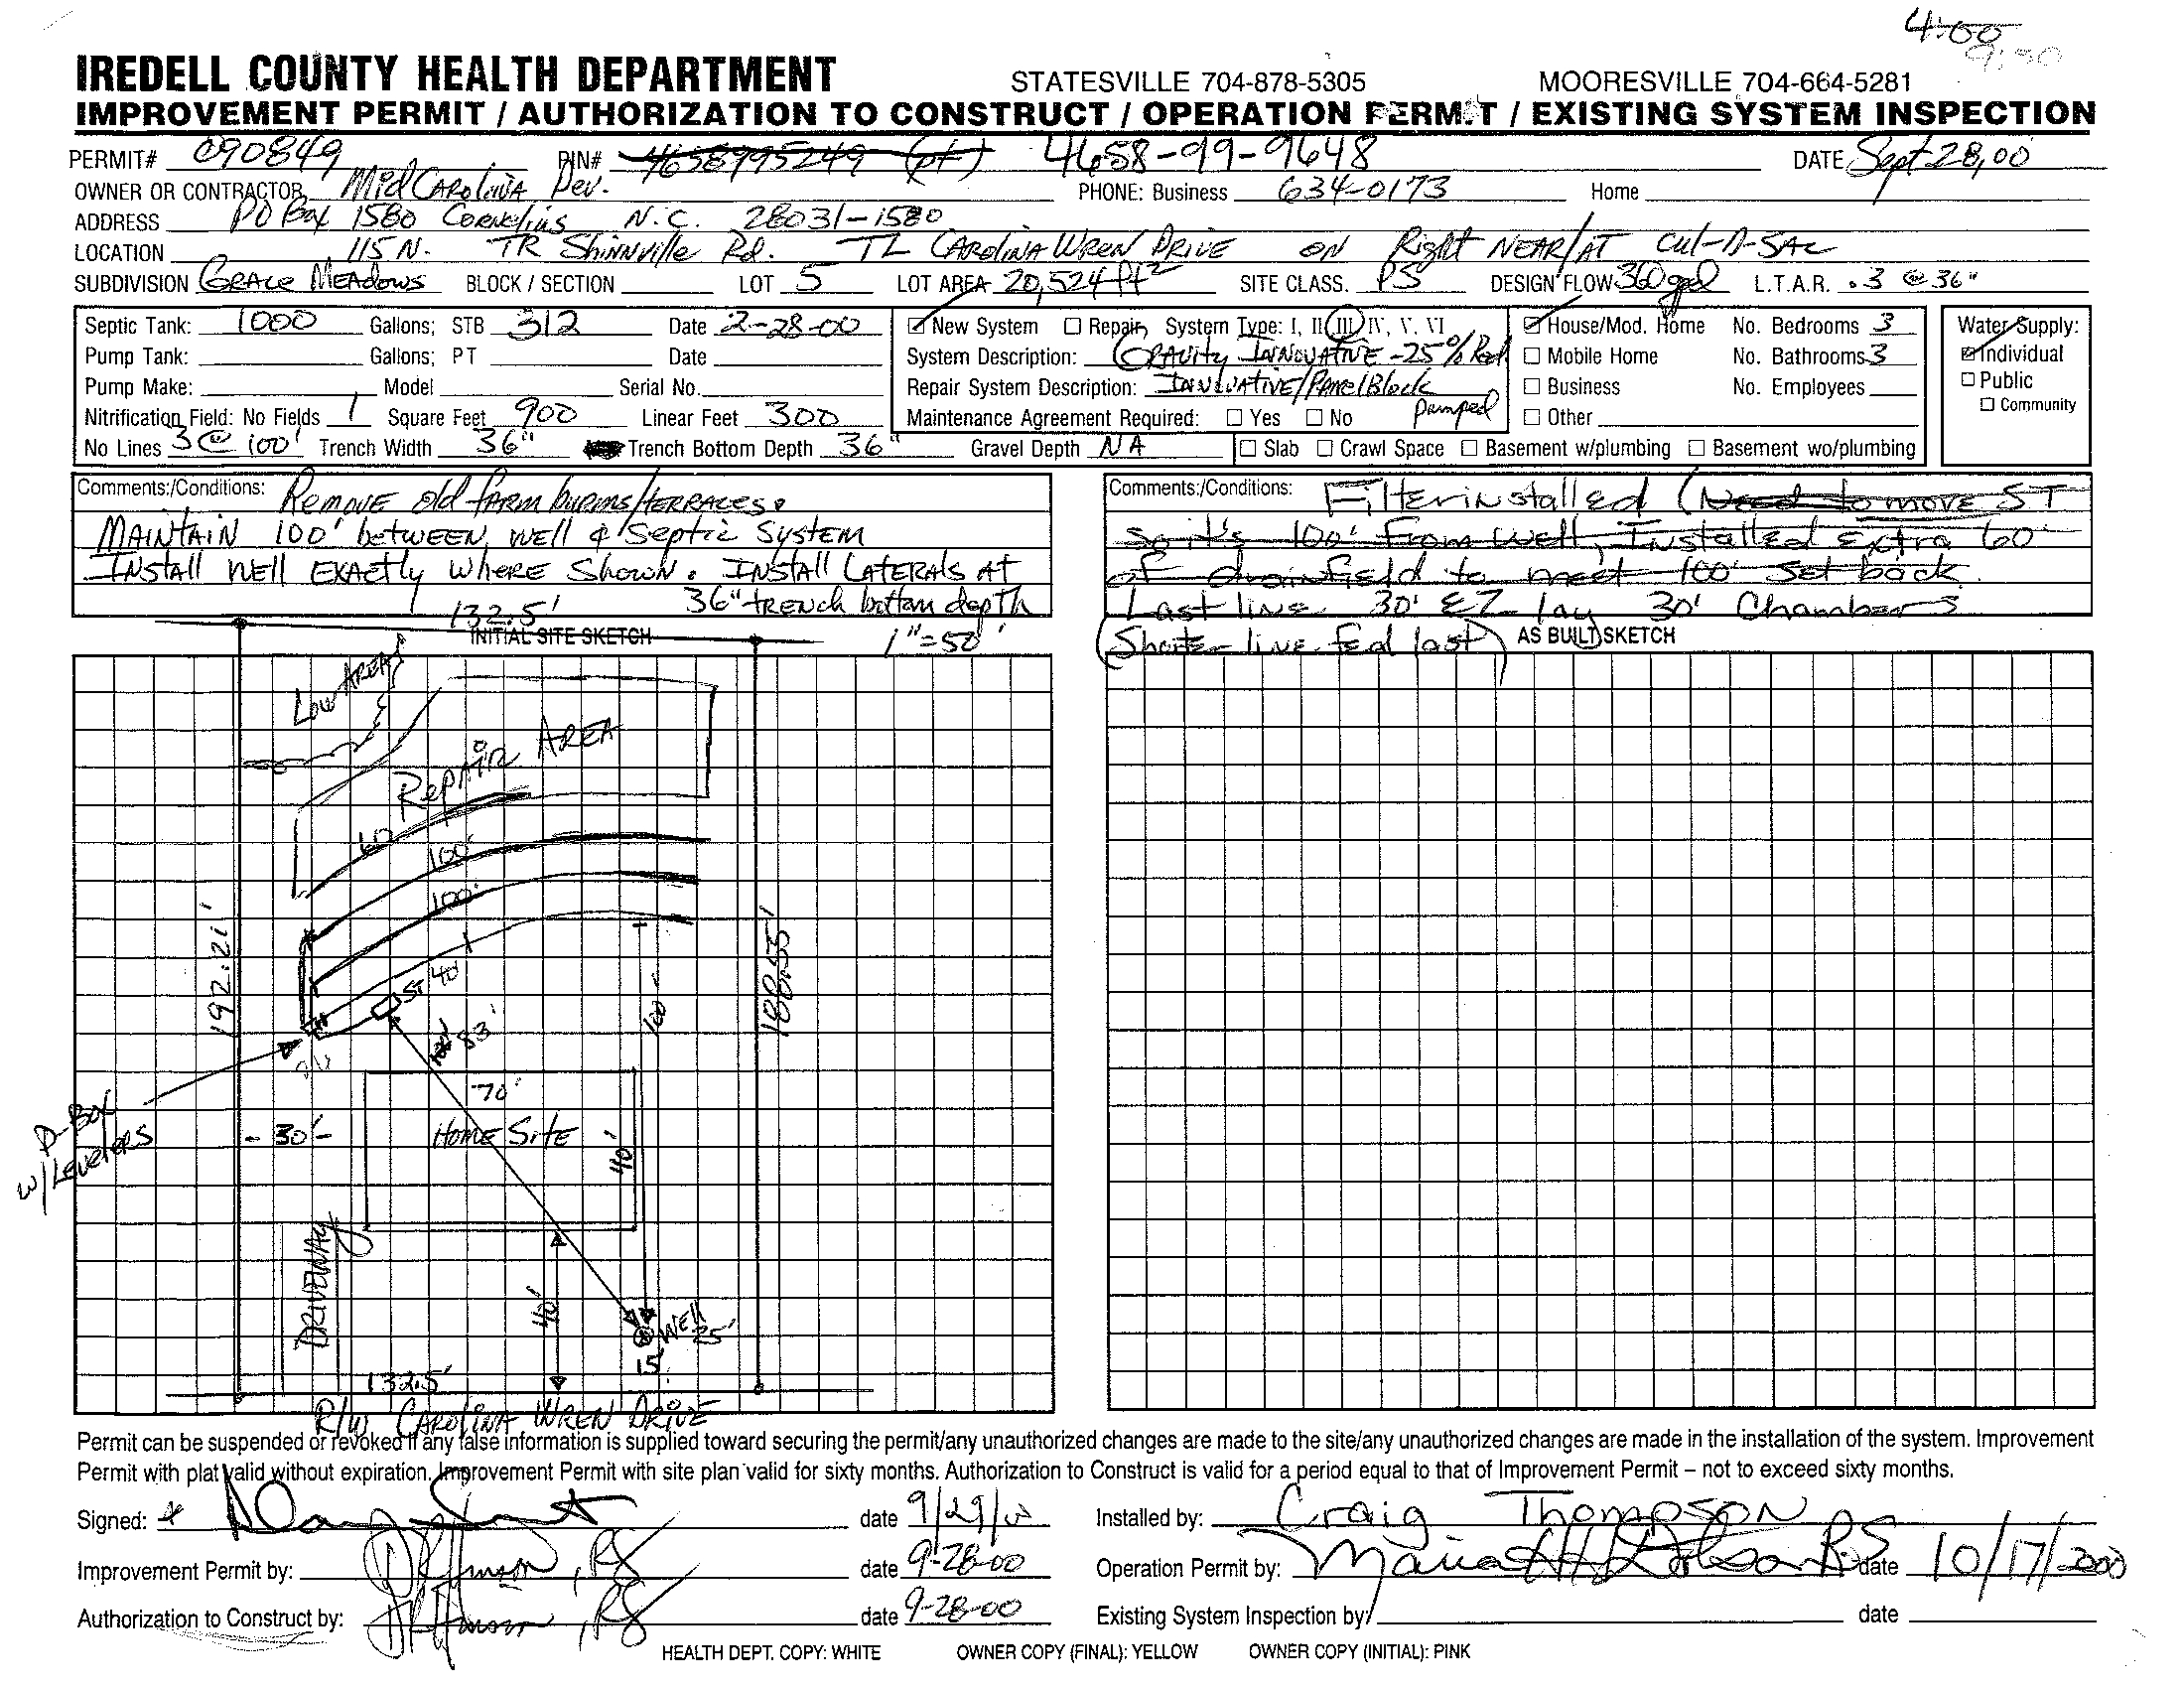 4:00
9:30
IREDELL COUNTY HEALTH DEPARTMENT STATESVILLE 704-878-5305 MOORESVILLE 704-664-5281
IMPROVEMENT PERMIT / AUTHORIZATION TO CONSTRUCT / OPERATION PERMIT / EXISTING SYSTEM INSPECTION
PERMIT# 090849 PIN# 4658995249 (pt) 4658-99-9648 DATE Sept 28,00
OWNER OR CONTRACTOR MidCAROLINA Dev. PHONE: Business 634-0173 Home
ADDRESS PO Box 1580 CORNELIUS N.C. 28031-1580
LOCATION 115 N. TR Shinnville Rd. TL CAROLINA WREN DRIVE ON Right NEAR/AT CUL-D-SAC
SUBDIVISION GRACE MEADOWS BLOCK / SECTION LOT 5 LOT AREA 20,524 ft² SITE CLASS. PS DESIGN FLOW 360 gpd L.T.A.R. .3 @ 36"
Septic Tank: 1000 Gallons; STB 312 Date 2-28-00
Pump Tank: Gallons; PT Date
Pump Make: Model Serial No.
Nitrification Field: No Fields 1 Square Feet 900 Linear Feet 300
No Lines 3 @ 100' Trench Width 36" Trench Bottom Depth 36" Gravel Depth NA
New System Repair System Type: I, II, III, IV, V, VI
System Description: GRAVITY INNOVATIVE -25% Red
Repair System Description: INNOVATIVE/PanelBlock
Maintenance Agreement Required: Yes No pumped
House/Mod. Home No. Bedrooms 3
Mobile Home No. Bathrooms 3
Business No. Employees
Other
Slab Crawl Space Basement w/plumbing Basement wo/plumbing
Water Supply:
Individual
Public
Community
Comments:/Conditions: REMOVE old FARM burms/TERRACES.
MAINTAIN 100' bETWEEN WELL & SEPTIC SYSTEM
INSTALL WELL EXACTLY WHERE SHOWN. INSTALL LATERALS AT
36" TRENCH bottom depth
Comments:/Conditions: Filter installed (Need to move ST
so it's 100' From well, Installed Extra 60'
of drainfield to meet 100' set back
Last line 30' EZ lay 30' Chambers
(Shorter line fed last)
132.5'
INITIAL SITE SKETCH
1"=50'
AS BUILT SKETCH
LOW AREA
REPAIR AREA
60
100'
100'
192.21'
188.55'
ST 40'
83'
100'
D-Box
w/Levelers
70'
- 30' -
HOME SITE
40'
DRIVEWAY
40'
WELL
25'
15'
132.5'
R/W CAROLINA WREN DRIVE
Permit can be suspended or revoked if any false information is supplied toward securing the permit/any unauthorized changes are made to the site/any unauthorized changes are made in the installation of the system. Improvement
Permit with plat valid without expiration. Improvement Permit with site plan valid for sixty months. Authorization to Construct is valid for a period equal to that of Improvement Permit – not to exceed sixty months.
Signed: date 9/29/00 Installed by: Craig Thompson
Improvement Permit by: , RS date 9-28-00 Operation Permit by: Maria RS date 10/17/2000
Authorization to Construct by: , RS date 9-28-00 Existing System Inspection by: date
HEALTH DEPT. COPY: WHITE OWNER COPY (FINAL): YELLOW OWNER COPY (INITIAL): PINK